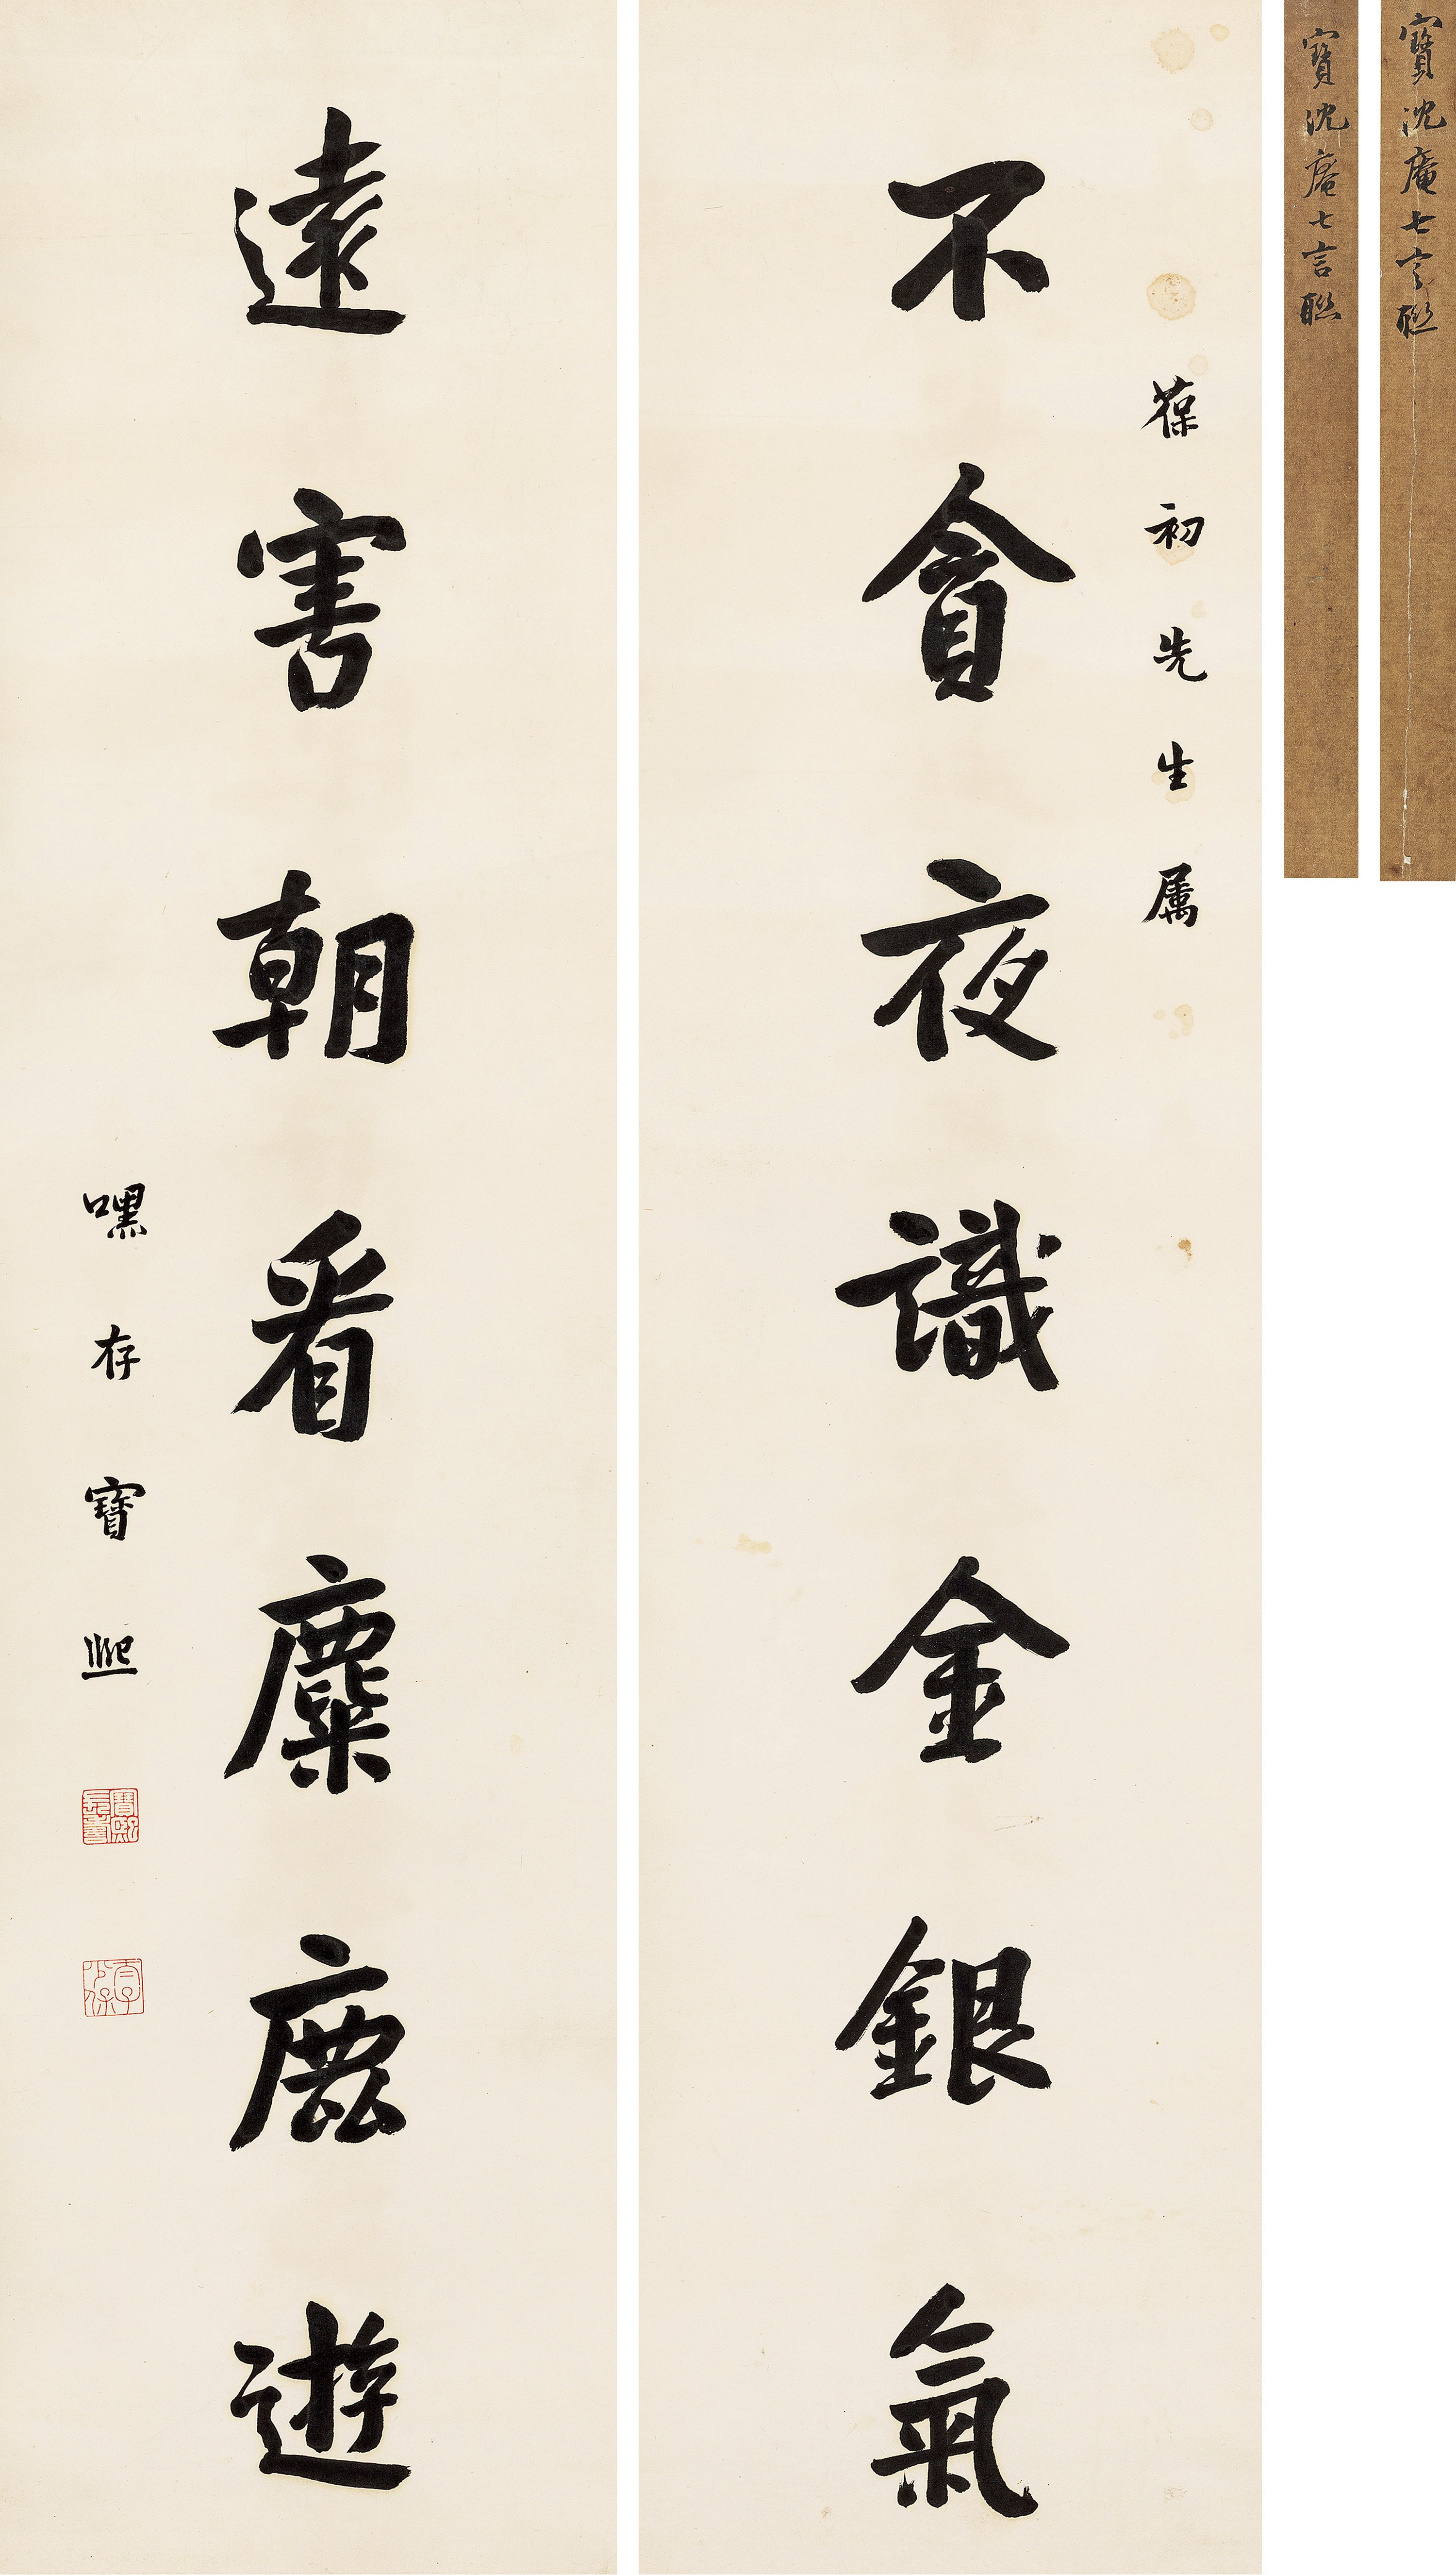 寶沈庵七言聯
寶沈庵七言聯
葆初先生属
不貪夜識金銀氣
遠害朝看麋鹿遊
嘿存寶熙
寶熙長壽